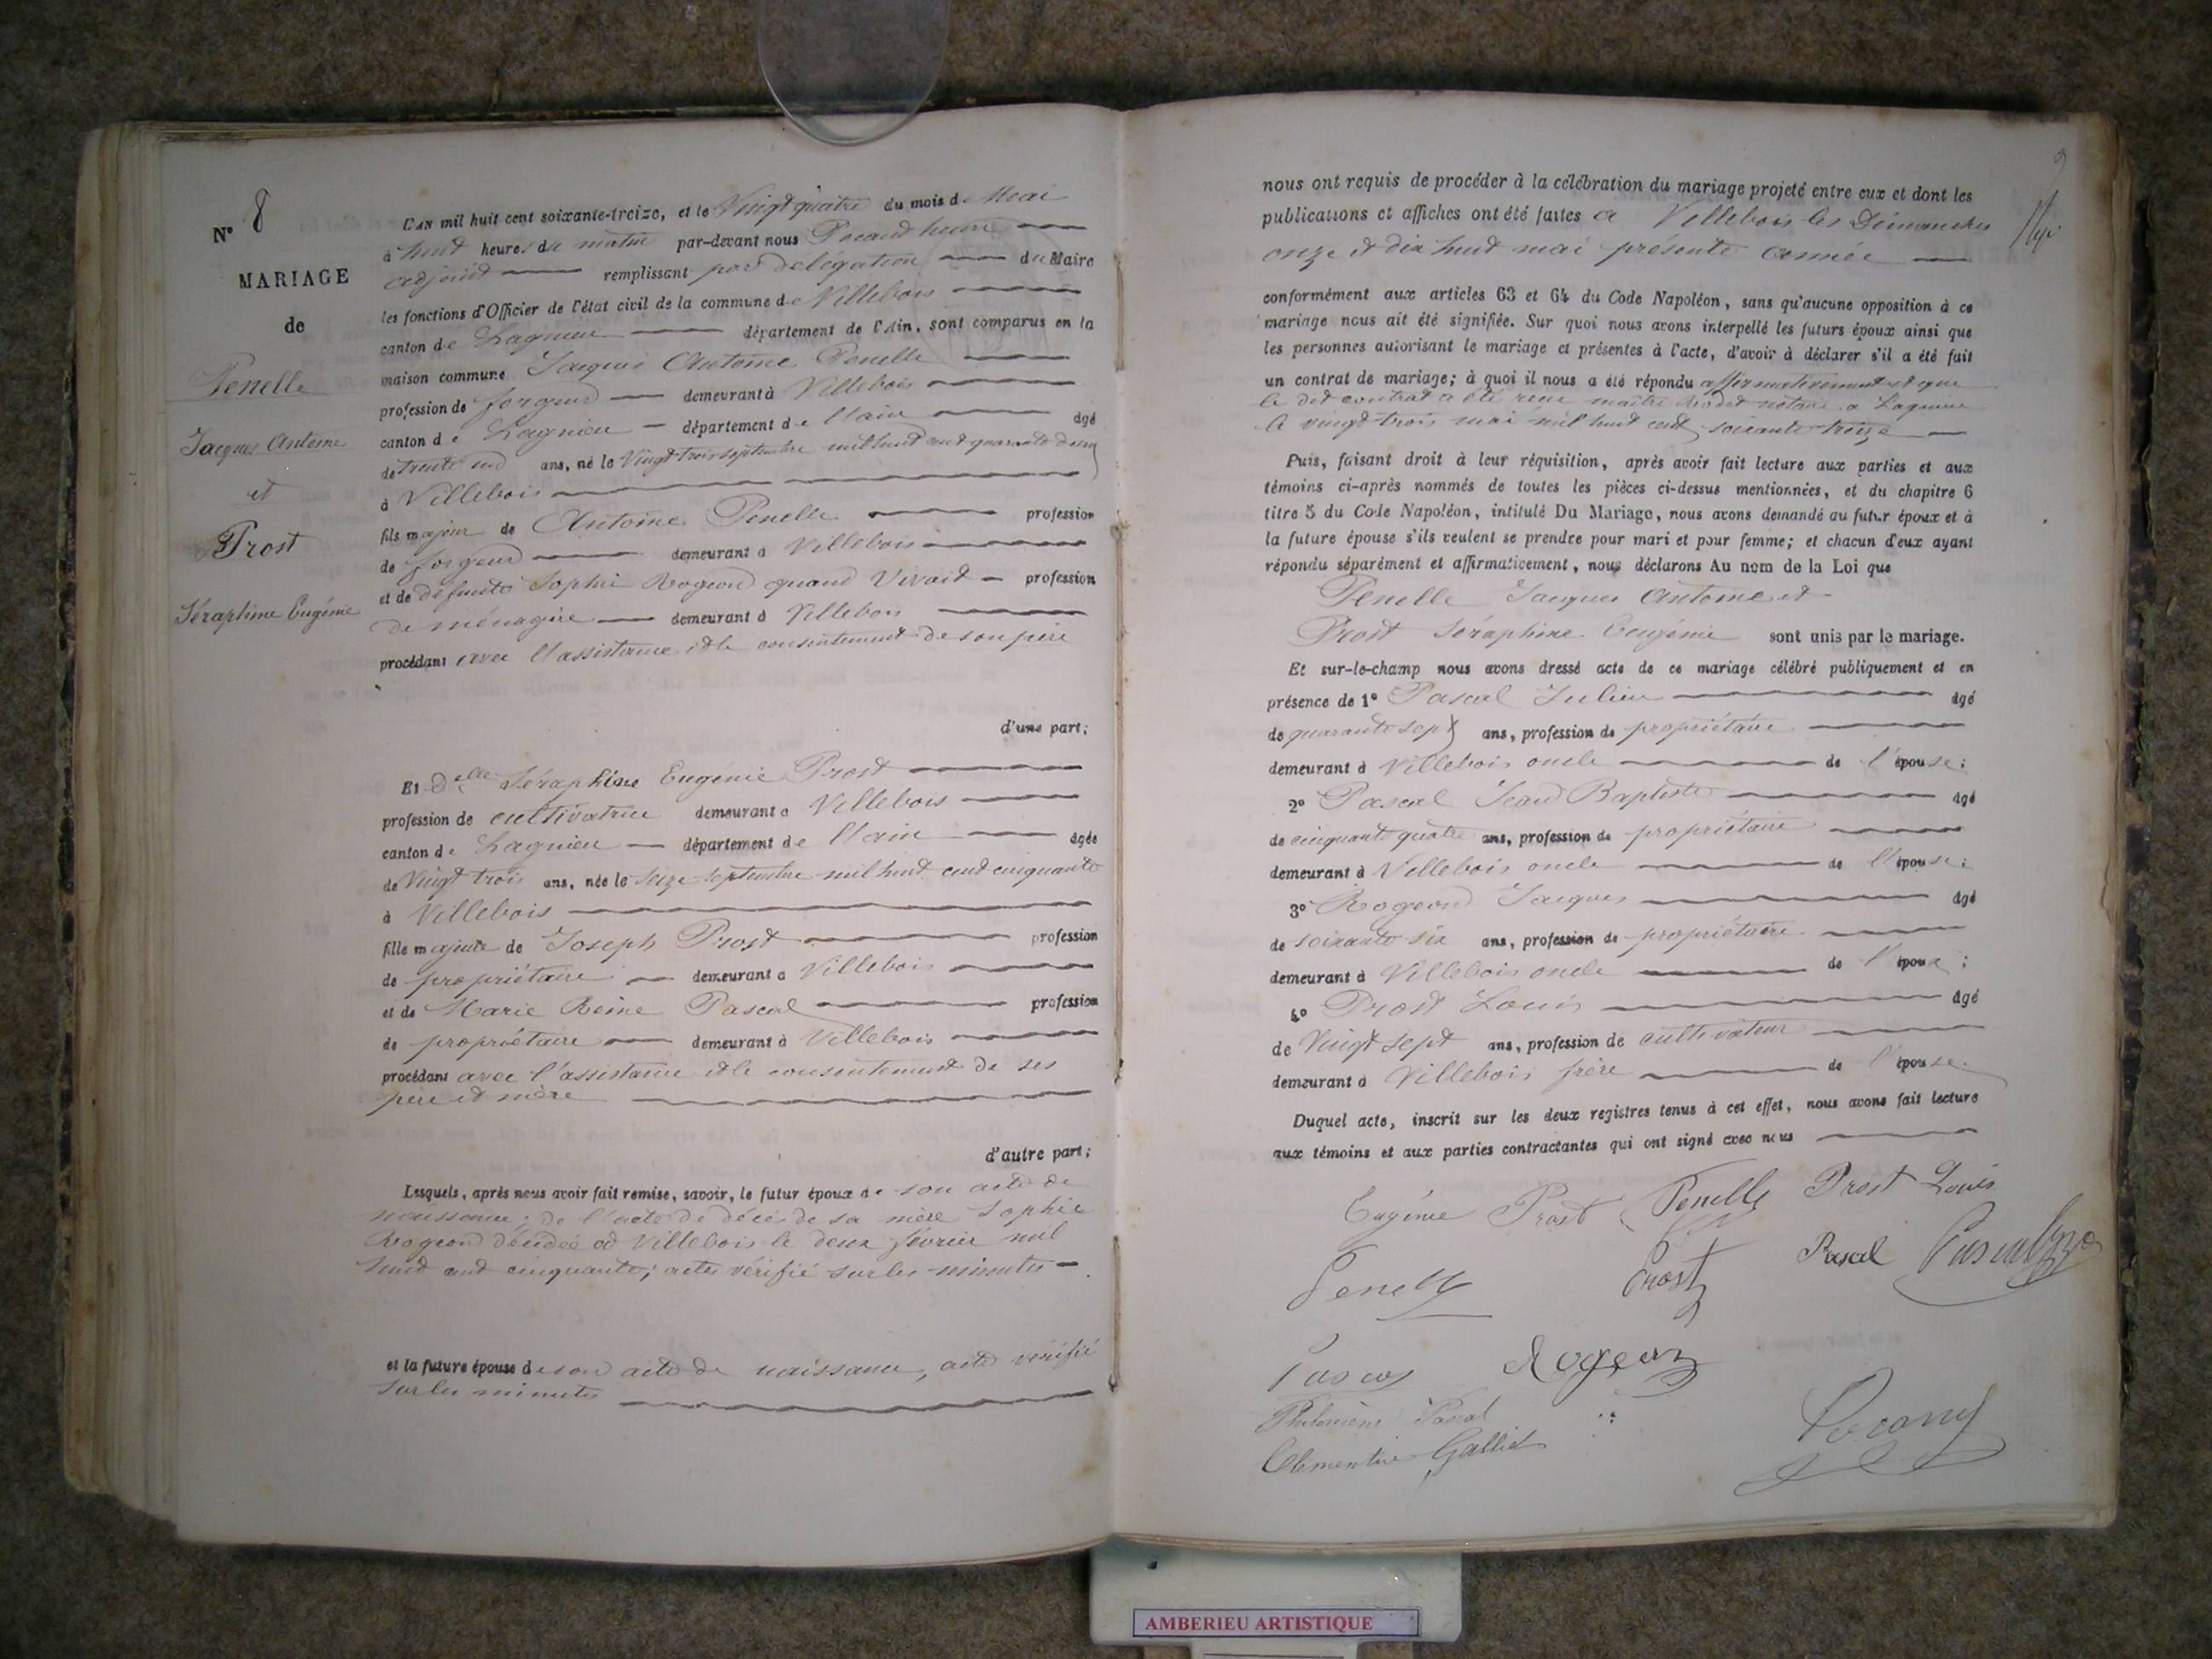 N° 8
MARIAGE
de
Penelle
Jacques Antoine
et
Prost
Séraphine Eugénie
L'AN mil huit cent soixante-treize, et le Vingt quatre du mois de Mai
à huit heures du matin par-devant nous Pocard henri
adjoint remplissant par délégation du Maire
les fonctions d'Officier de l'état civil de la commune de Villebois
canton de Lagnieu département de l'Ain, sont comparus en la
maison commune Jacques Antoine Penelle
profession de forgeur demeurant à Villebois
canton de Lagnieu département de l'ain âgé
de trente ans, né le Vingt trois septembre mil huit cent quarante deux
à Villebois
fils majeur de Antoine Penelle profession
de forgeur demeurant à Villebois
et de défunte Sophie Rogeon quand Vivait profession
de ménagère demeurant à Villebois
procédant avec l'assistance et le consentement de son père
d'une part;
Et Delle Séraphine Eugénie Prost
profession de cultivatrice demeurant à Villebois
canton de Lagnieu département de l'ain âgée
de Vingt trois ans, née le seize septembre mil huit cent cinquante
à Villebois
fille majeure de Joseph Prost profession
de propriétaire demeurant à Villebois
et de Marie Reine Pascal profession
de propriétaire demeurant à Villebois
procédant avec l'assistance et le consentement de ses
père et mère
d'autre part;
Lesquels, après nous avoir fait remise, savoir, le futur époux de son acte de
naissance; de l'acte de décès de sa mère Sophie
Rogeon décédée à Villebois le deux février mil
huit cent cinquante; actes vérifié sur les minutes
et la future épouse de son acte de naissance, acte vérifié
sur les minutes
nous ont requis de procéder à la célébration du mariage projeté entre eux et dont les
publications et affiches ont été faites à Villebois les Dimanches
onze et dix huit mai présente année
conformément aux articles 63 et 64 du Code Napoléon, sans qu'aucune opposition à ce
mariage nous ait été signifiée. Sur quoi nous avons interpellé les futurs époux ainsi que
les personnes autorisant le mariage et présentes à l'acte, d'avoir à déclarer s'il a été fait
un contrat de mariage; à quoi il nous a été répondu affirmativement et que
le dit contrat a été reçu maître Rodet notaire à Lagnieu
le vingt trois mai mil huit cent soixante treize
Puis, faisant droit à leur réquisition, après avoir fait lecture aux parties et aux
témoins ci-après nommés de toutes les pièces ci-dessus mentionnées, et du chapitre 6
titre 5 du Code Napoléon, intitulé Du Mariage, nous avons demandé au futur époux et à
la future épouse s'ils veulent se prendre pour mari et pour femme; et chacun d'eux ayant
répondu séparément et affirmativement, nous déclarons Au nom de la Loi que
Penelle Jacques Antoine et
Prost Séraphine Eugénie sont unis par le mariage.
Et sur-le-champ nous avons dressé acte de ce mariage célébré publiquement et en
présence de 1° Pascal Julien âgé
de quarante sept ans, profession de propriétaire
demeurant à Villebois oncle de l'épouse;
2° Pascal Jean Baptiste âgé
de cinquante quatre ans, profession de propriétaire
demeurant à Villebois oncle de l'épouse;
3° Rogeon Jacques âgé
de soixante six ans, profession de propriétaire
demeurant à Villebois oncle de l'époux;
4° Prost Louis âgé
de Vingt sept ans, profession de cultivateur
demeurant à Villebois frère de l'épouse.
Duquel acte, inscrit sur les deux registres tenus à cet effet, nous avons fait lecture
aux témoins et aux parties contractantes qui ont signé avec nous
Eugénie Prost Penelle Prost Louis
Penelle Prost Pascal Pascal
Pascal Rogeon
Philomène Pascal
Clémentine Galliet
Pocard
AMBERIEU ARTISTIQUE